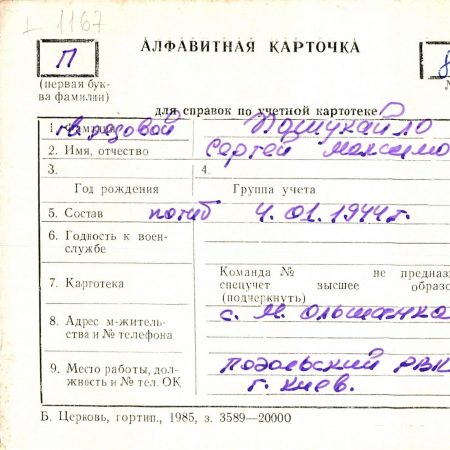 1167
П
АЛФАВИТНАЯ КАРТОЧКА
8
(первая бук-
ва фамилии)
для справок по учетной картотеке
1. Фамилия гв. рядовой Пошукайло
2. Имя, отчество Сергей Максимо
3. 4.
Год рождения Группа учета
5. Состав погиб 4.01.1944г.
6. Годность к воен-
службе
7. Картотека
Команда № не предназ
спецучет высшее образо
(подчеркнуть)
8. Адрес м-житель-
ства и № телефона
с. М. Ольшанка
9. Место работы, дол-
жность и № тел. ОК
Подольский РВК
г. Киев.
Б. Церковь, гортип., 1985, з. 3589—20000